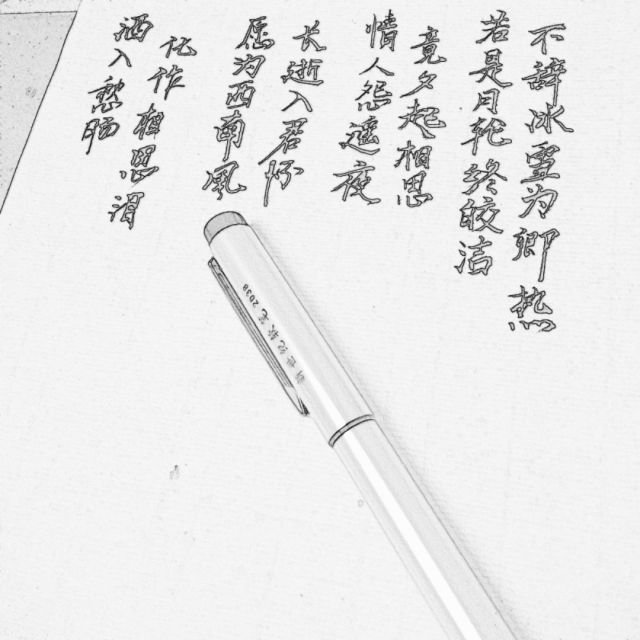 酒入愁肠
化作相思泪
愿为西南风
长逝入君怀
情人怨遥夜
竟夕起相思
若是月轮终皎洁
不辞冰雪为卿热
2038